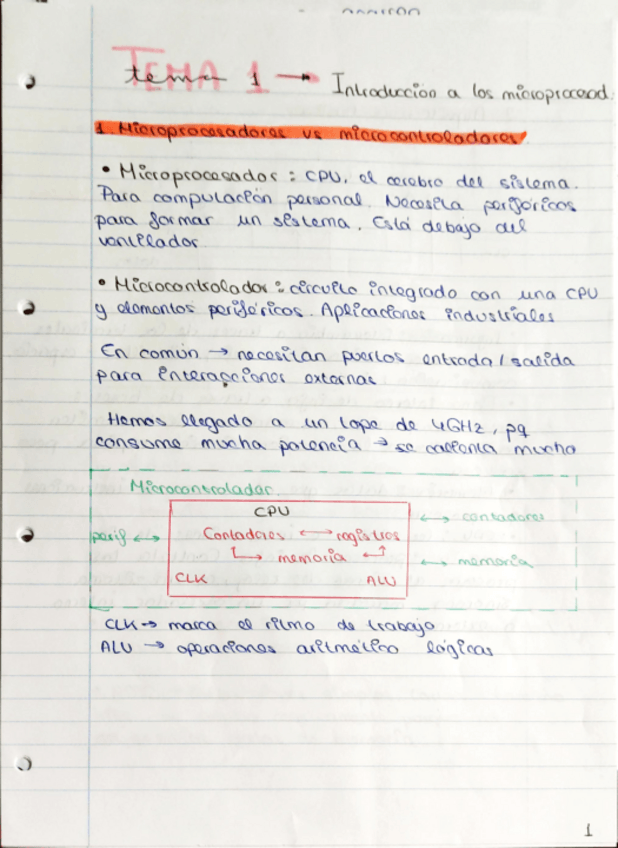 TEMA 1
tema 1 → Introducción a los microprocesad.
1. Microprocesadores vs microcontroladores
• Microprocesador: CPU, el cerebro del sistema.
Para computación personal. Necesita periféricos
para formar un sistema. Está debajo del
ventilador
• Microcontrolador: circuito integrado con una CPU
y elementos periféricos. Aplicaciones industriales
En común → necesitan puertos entrada/salida
para interacciones externas
Hemos llegado a un tope de 4GHz, pq
consume mucha potencia → se calienta mucho
Microcontrolador
CPU
↔ contadores
perif ↔
Contadores ↔ registros
↳ memoria ↔
↔ memoria
CLK ALU
CLK → marca el ritmo de trabajo
ALU → operaciones aritmético lógicas
1